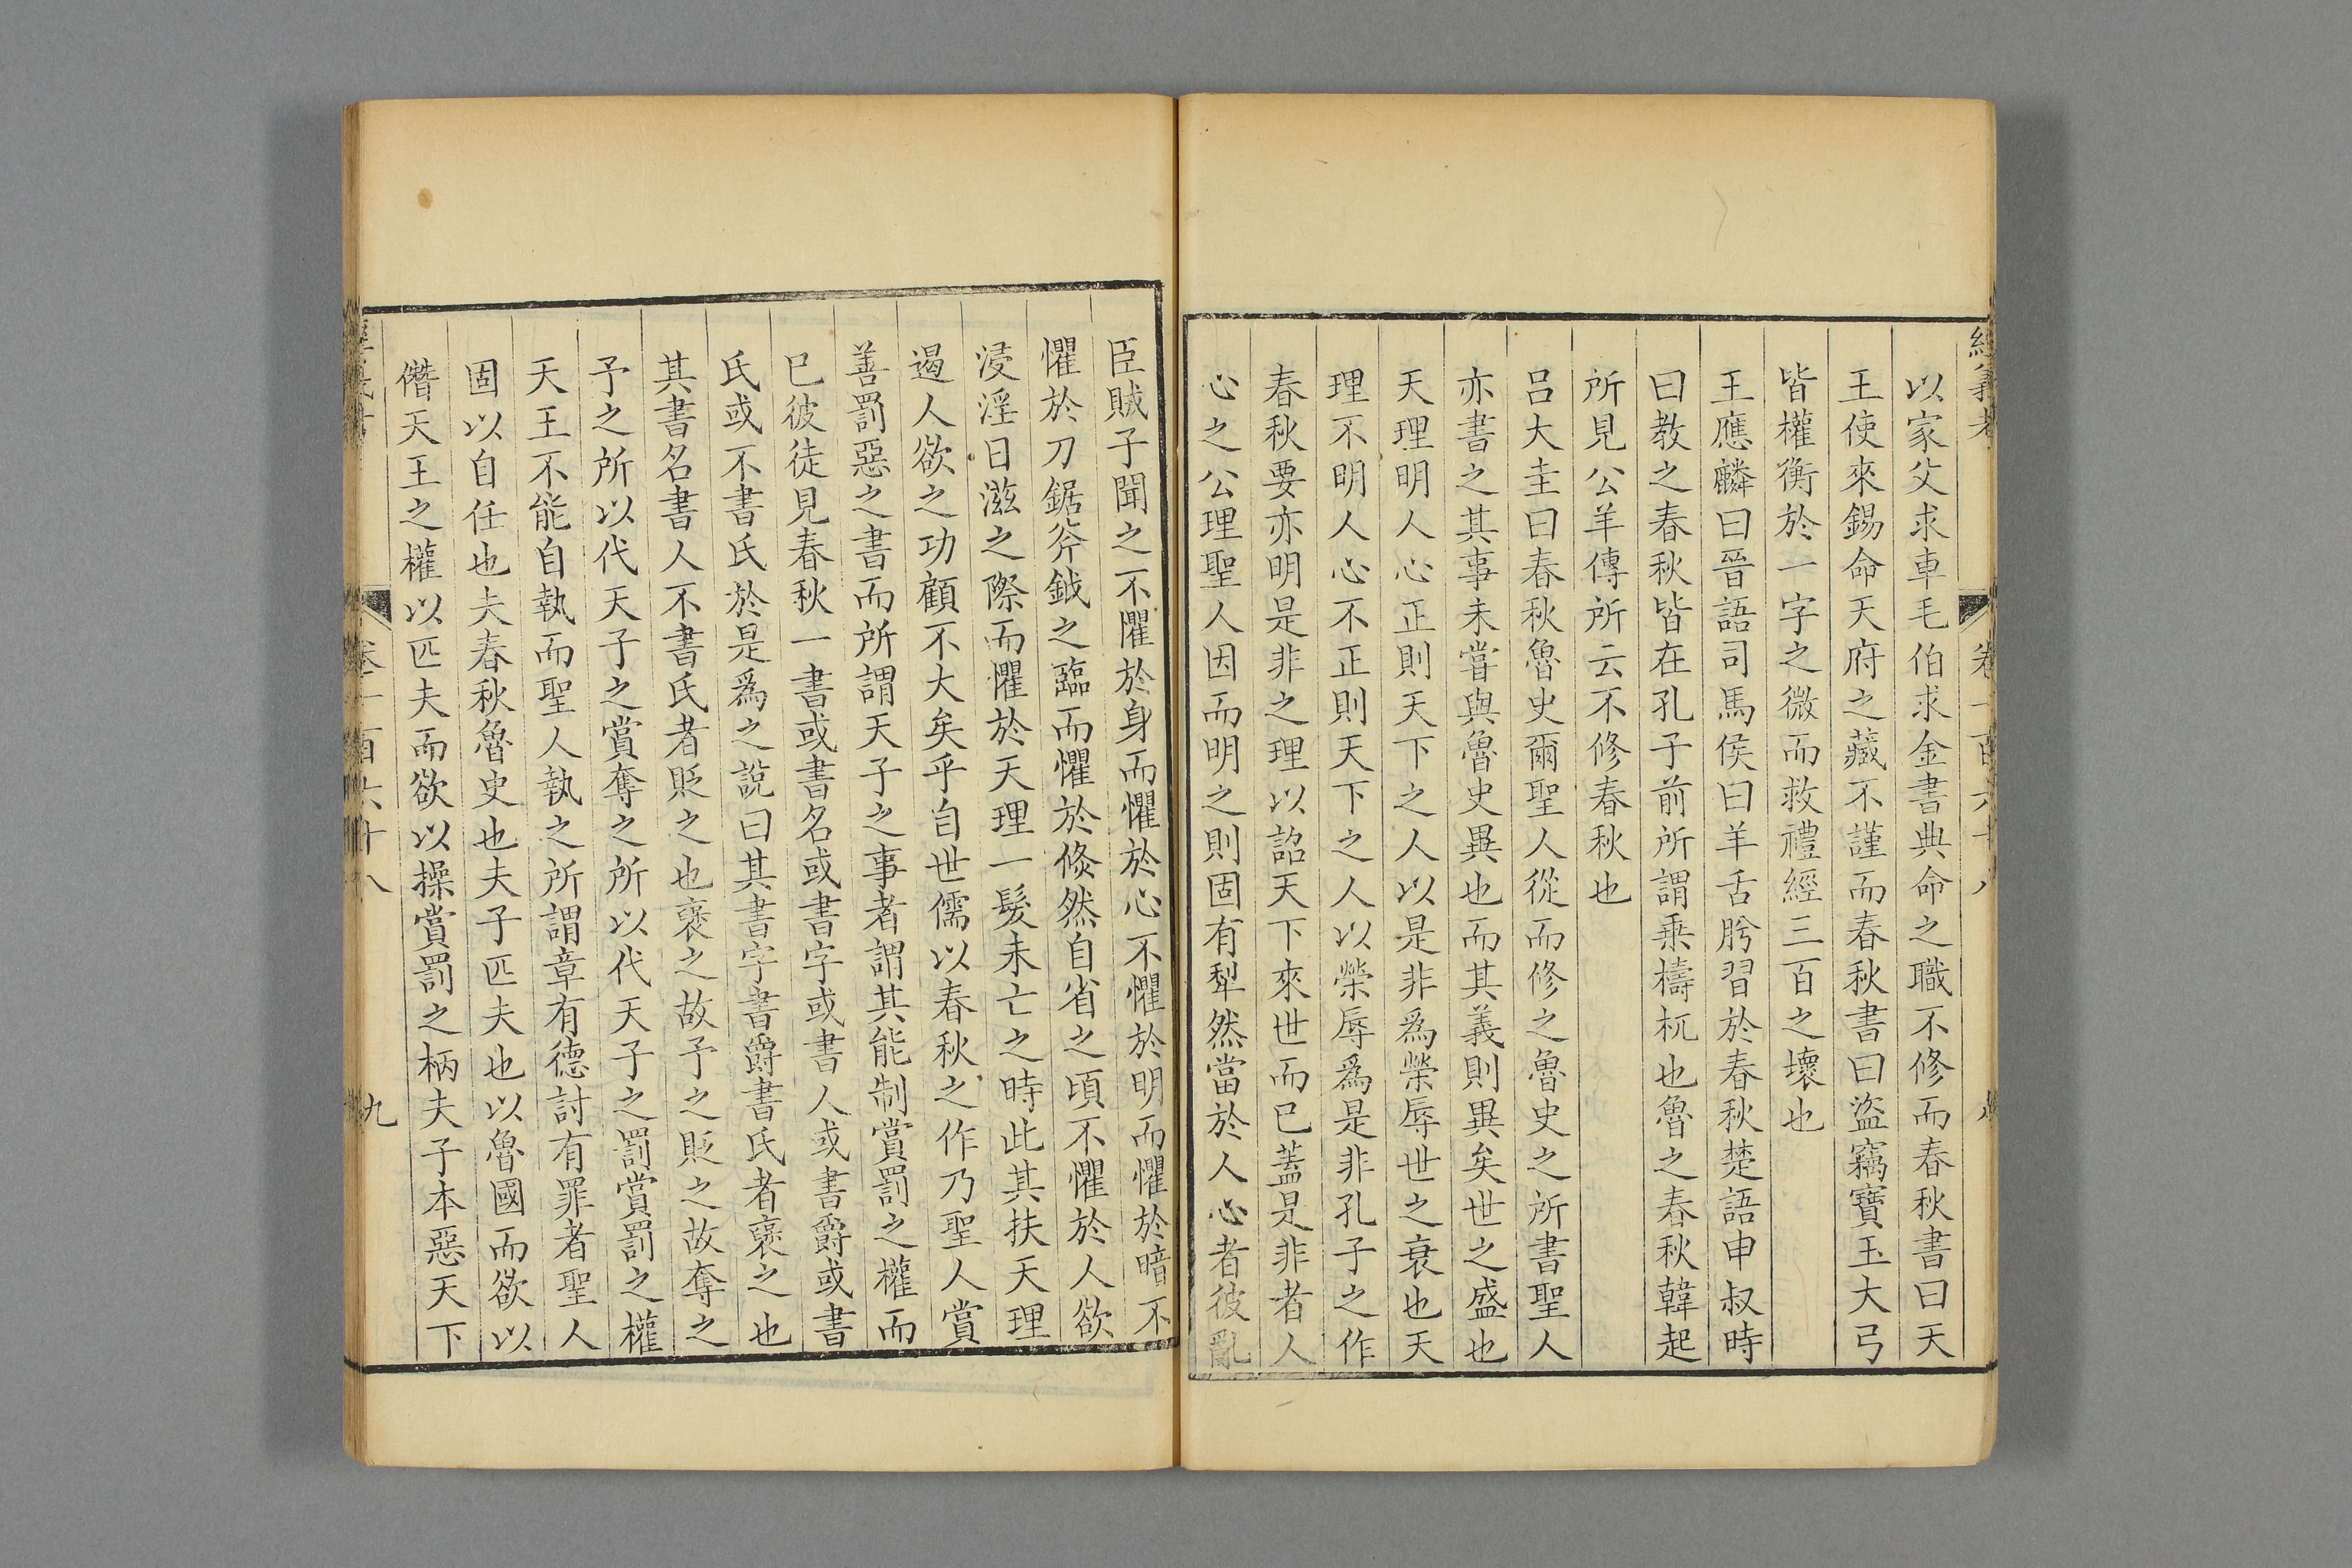 以家父求車毛伯求金書典命之職不修而春秋書曰天
王使來錫命天府之藏不謹而春秋書曰盜竊寶玉大弓
皆權衡於一字之微而救禮經三百之壞也
王應麟曰晉語司馬侯曰羊舌肸習於春秋楚語申叔時
曰教之春秋皆在孔子前所謂乘檮杌也魯之春秋韓起
所見公羊傳所云不修春秋也
呂大圭曰春秋魯史爾聖人從而修之魯史之所書聖人
亦書之其事未嘗與魯史異也而其義則異矣世之盛也
天理明人心正則天下之人以是非為榮辱世之衰也天
理不明人心不正則天下之人以榮辱為是非孔子之作
春秋要亦明是非之理以詔天下來世而已蓋是非者人
心之公理聖人因而明之則固有犁然當於人心者彼亂
臣賊子聞之不懼於身而懼於心不懼於明而懼於暗不
懼於刀鋸斧鉞之臨而懼於倐然自省之頃不懼於人欲
浸淫日滋之際而懼於天理一髮未亡之時此其扶天理
遏人欲之功顧不大矣乎自世儒以春秋之作乃聖人賞
善罰惡之書而所謂天子之事者謂其能制賞罰之權而
已彼徒見春秋一書或書名或書字或書人或書爵或書
氏或不書氏於是爲之說曰其書字書爵書氏者褒之也
其書名書人不書氏者貶之也褒之故予之貶之故奪之
予之所以代天子之賞奪之所以代天子之罰賞罰之權
天王不能自執而聖人執之所謂章有德討有罪者聖人
固以自任也夫春秋魯史也夫子匹夫也以魯國而欲以
僭天王之權以匹夫而欲以操賞罰之柄夫子本惡天下
卷一百六十八
九